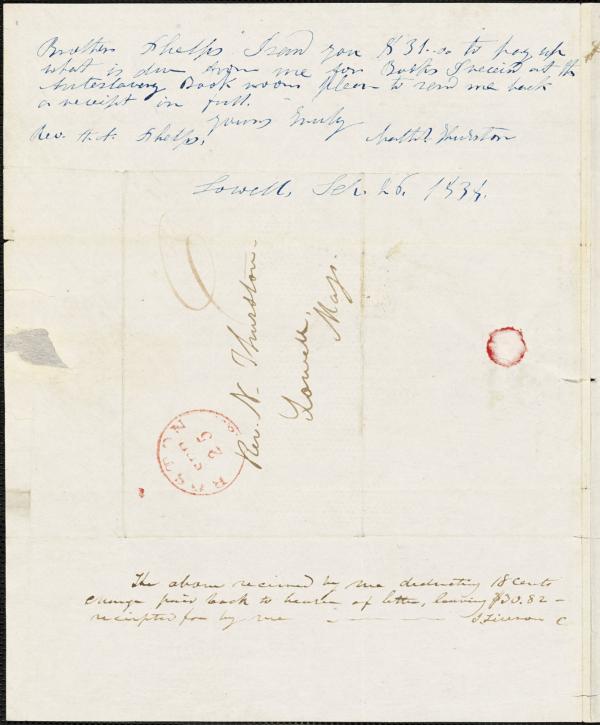 Brother Phelps I send you $31.00 to pay up
what is due from me for Books I receivd at the
Antislavery Book room please to send me back
a receipt in full.
Yours Truly
Rev. A. A. Phelps, Nathl. Thurston
Lowell, Sep. 26. 1838.
Rev. N. Thurston.
Lowell,
Mass.
BOSTON
SEP
25
The above received by me deducting 18 cents
change paid back to bearer of letter, leaving $30.82 –
receipted for by me